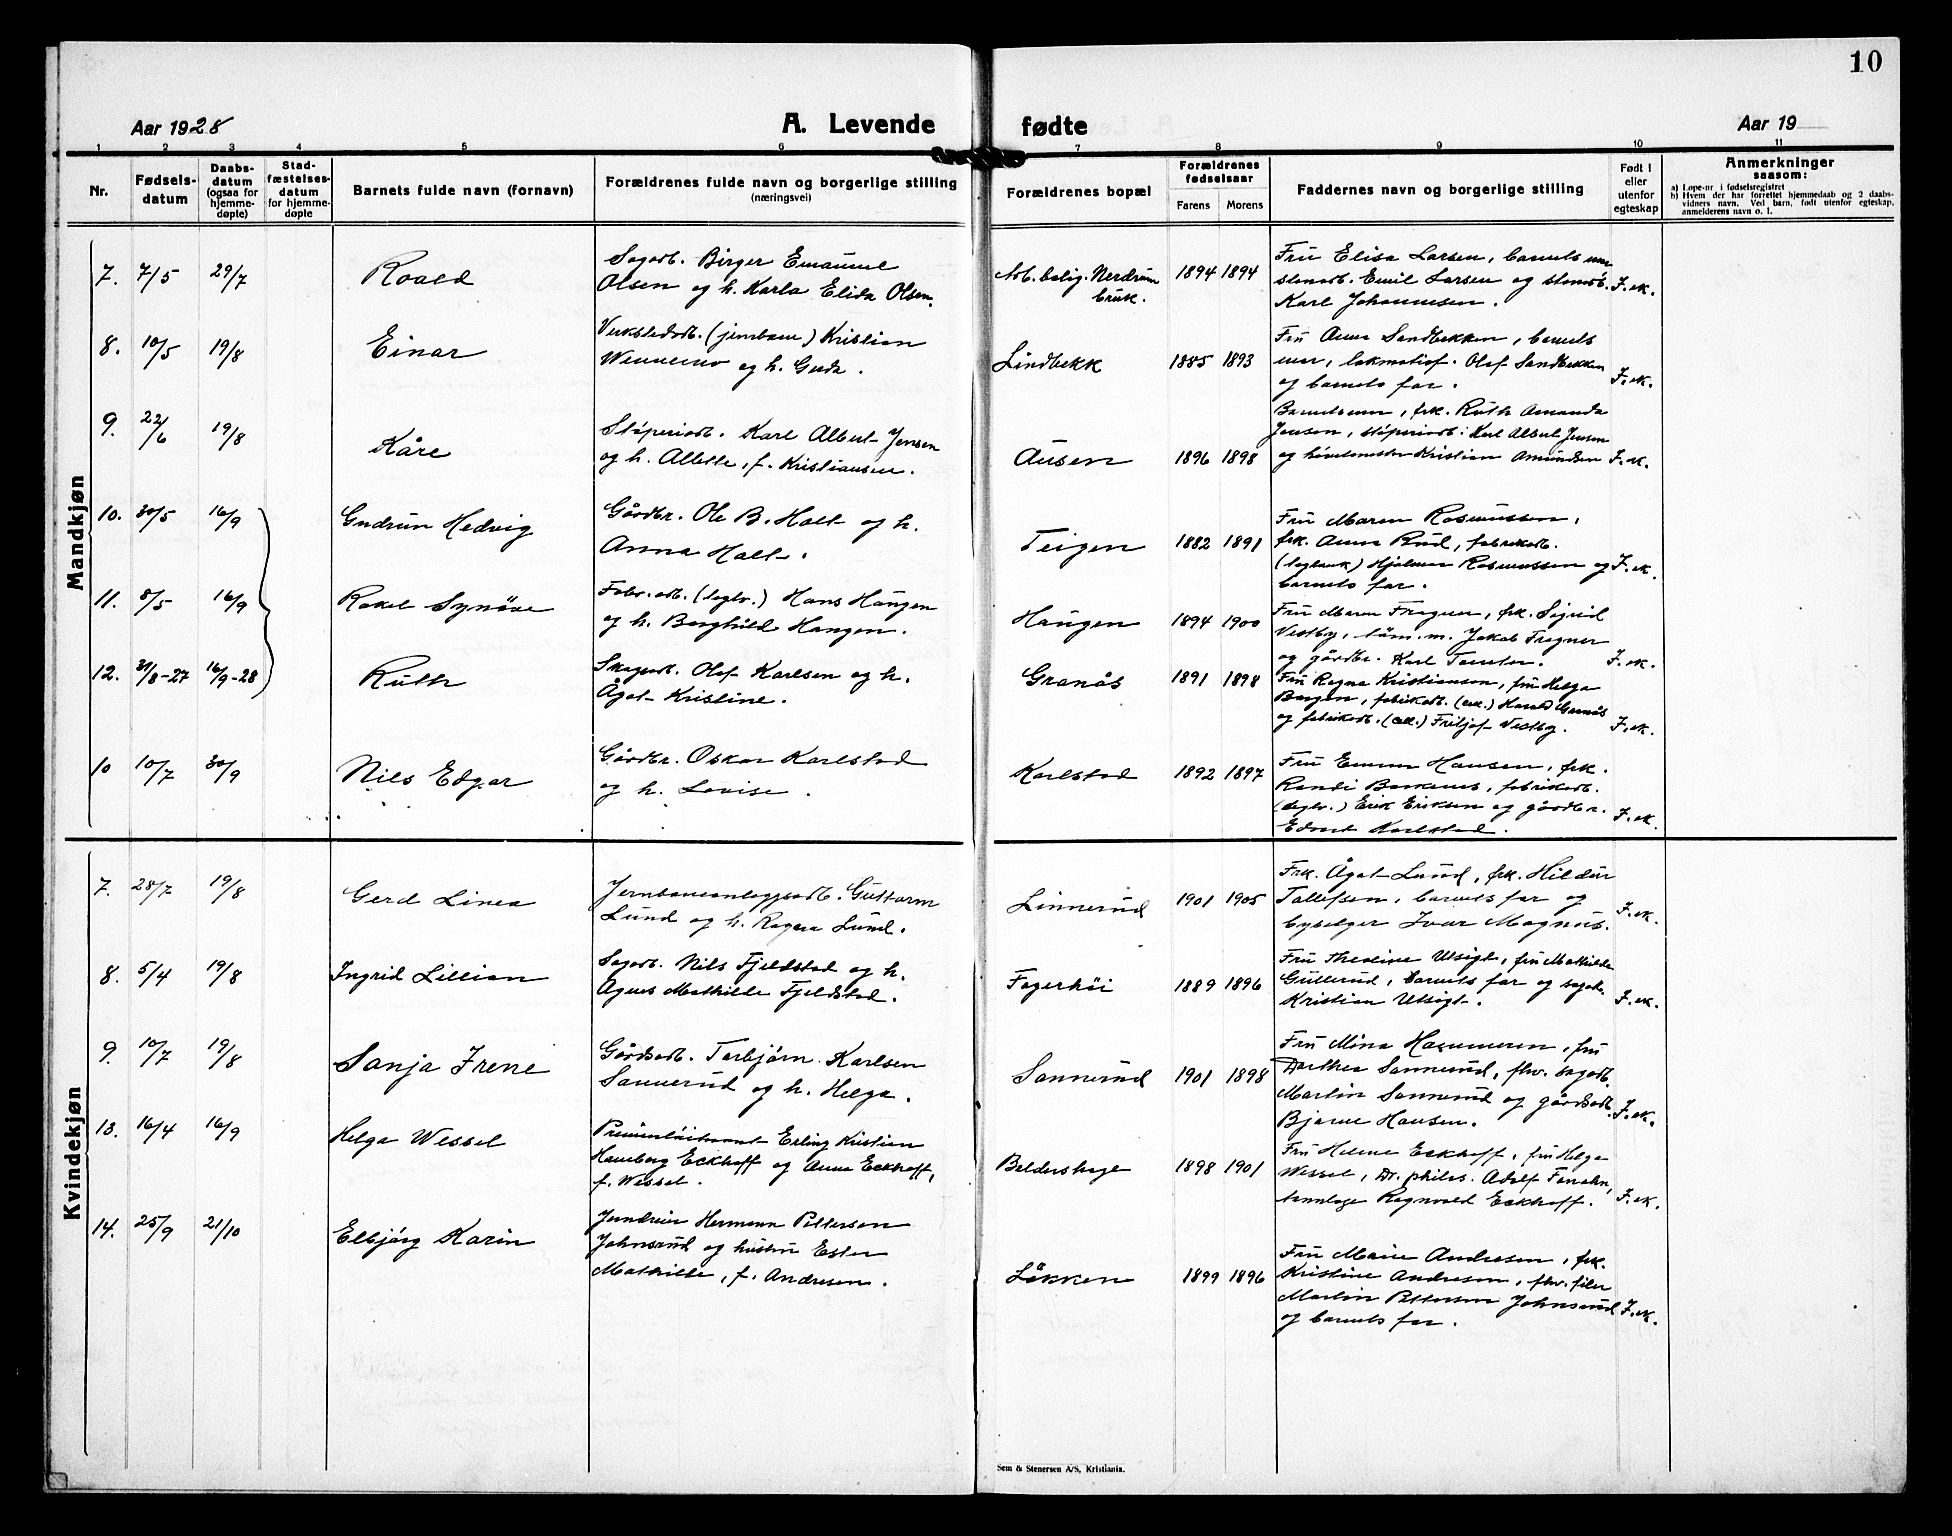 10
Aar 1928
A. Levende
fødte
Aar 19
1 2 3 4 5 6 7 8 9 10 11
Nr.
Fødsels-
datum
Daabs-
datum
(ogsaa for
hjemme-
døpte)
Stad-
fæstelses-
datum
for hjemme-
døpte
Barnets fulde navn (fornavn)
Forældrenes fulde navn og borgerlige stilling
(næringsvei)
Forældrenes bopæl
Forældrenes
fødselsaar
Farens Morens
Faddernes navn og borgerlige stilling
Født i
eller
utenfor
egteskap
Anmerkninger
saasom:
a) Løpe-nr. i fødselsregistret
b) Hvem der har forrettet hjemmedaab og 2 daabs-
vidners navn. Ved barn, født utenfor egteskap,
anmelderens navn o. l.
Mandkjøn
7. 7/5 29/7
Roald
Sagarb. Birger Emanuel
Olsen og h. Karla Elida Olsen.
Arb.bolig. Nerdrum
bruk.
1894 1894
Fru Elisa Larsen, barnets mor
stenarb. Emil Larsen og stenarb.
Karl Johannesen.
F. ek.
8. 10/5 19/8
Einar
Verkstedarb. (jernbane) Kristian
Wennemo og h. Gerda.
Lindbekk
1885 1893
Fru Anna Sandbekken, barnets
mor, lokmotivf. Olaf Sandbekken
og barnets far.
F. ek.
9. 22/6 19/8
Kåre
Stóperiarb. Karl Albert Jensen
og h. Alette, f. Kristiansen.
Ausen
1896 1898
Barnets mor, frk. Ruth Amanda
Jensen, stóperiarb. Karl Albert Jensen
og Kristian Amundsen
F. ek.
10. 30/5 16/9
Gudrun Hedvig
Gårdbr. Ole B. Holt og h.
Anna Holt.
Teigen
1882 1891
Fru Maren Rasmussen,
frk. Anna Rud, fabrikarb.
(teglverk) Hjalmar Rasmussen og
barnets far.
F. ek.
11. 8/5 16/9
Rakel Synöve
Fabr.arb. (teglv.) Hans Haugen
og h. Borghild Haugen.
Haugen
1894 1900
Fru Maren Fragner, frk. Sigrid
Vestby, töm.m. Jakob Fragner
og gårdbr. Karl Tomter.
F. ek.
12. 31/8-27 16/9-28
Ruth
Skogarb. Olaf Karlsen og h.
Ågot Kristine.
Granås
1891 1898
Fru Ragna Kristiansen, fru Helga
Borgen, fabrikarb. (cell.) Harald Granås
og fabrikarb. (cell.) Fritjof Vestby.
F. ek.
10 10/7 30/9
Nils Edgar
Gårdbr. Oskar Karlstad
og h. Lovise.
Karlstad
1892 1897
Fru Emma Hansen, frk.
Randi Bakkenes, fabrikarb.
(teglv.) Erik Eriksen og gårdbr.
Edvart Karlstad.
F. ek.
Kvindekjøn
7. 28/7 19/8
Gerd Linea
Jernbaneanleggsarb. Guttorm
Lund og h. Ragna Lund.
Linnerud
1901 1905
Frk. Ågot Lund, frk. Hildur
Tollefsen, barnets far og
byselger Ivar Magnus.
F. ek.
8. 5/4 19/8
Ingrid Lillian
Sagarb. Nils Fjeldstad og h.
Agnes Mathilde Fjeldstad.
Fagerhöi
1889 1896
Fru Thea Utsigt, fru Mathilde
Gullerud, barnets far og sagarb.
Kristian Utsigt.
F. ek.
9. 10/7 19/8
Sonja Irene
Gårdsarb. Torbjörn Karlsen
Sannerud og h. Helga.
Sannerud
1901 1898
Fru Mina Hammeren, fru
Dorthea Sannerud, fhv. sagarb.
Martin Sannerud og gårdsarb.
Bjarne Hansen.
F. ek.
13. 16/4 16/9
Helga Wessel
Premierlöitnant Erling Kristian
Hamborg Eckhoff og Anna Eckhoff,
f. Wessel.
Baldershage
1898 1901
Fru Helene Eckhoff, fru Helga
Wessel, Dr. philos. Adolf
tannlæge Ragnvald Eckhoff.
F. ek.
14. 25/9 21/10
Elbjörg Karin
Jerndreier Hermann Pettersen
Johnsrud og hustru Ester
Mathilde, f. Andresen.
Lökken
1899 1896
Fru Marie Andresen, frk.
Kristine Andresen, fhv. filer
Martin Pettersen Johnsrud
og barnets far.
F. ek.
Sem & Stenersen A/S, Kristiania.